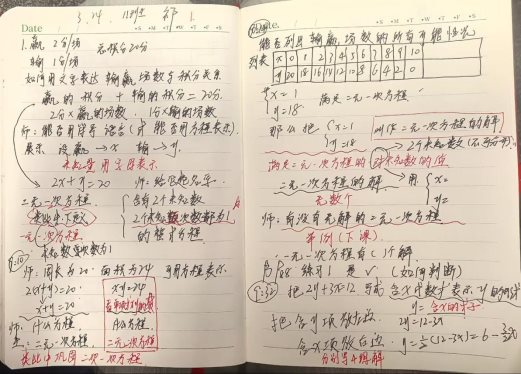 3.24.
Date
1. 赢 2分/场 总积分20分
输 1分/场
如何用文字表达 输赢场数与积分关系
赢的积分 + 输的积分 = 20分.
2分×赢的场数. 1分×输的场数
师: 能否用字母语言(
展示 设 赢 → x 输 → y.
未知量用字母表示
2x+y=20 师:
二元一次方程 含有2个未知数
类比 2个未知数次数都为1
一元一次方程 的整式方程
未知数次数为1
师: 周长为20 面积为24 可用方程表示
2(x+y)=20 xy=24
x+y=20
师: 什么方程 什么方程
生: 二元一次方程 二元二次方程
类比中巩固二元一次方程
Date.
能否列出输赢场数的所有可能情况
列表 x 0 1 2 3 4 5 6 7 8 9 10
y 20 18 16 14 12 10 8 6 4 2 0
x=1
y=18 满足二元一次方程
那么把 x=1 叫作二元一次方程的解
y=18 2个未知数
满足二元一次方程的 对未知数的值
二元一次方程的解 用 x=
无数个 y=
师: 有没有无解的二元一次方程
举例 (下课)
一元一次方程有1个解
P88 练习1 (如何判断)
9:32 把 2y+3x=12 写成 含x代数式表示y的形式
y= 含x的式子
把含y项放左边. 2y=12-3x
含x项放右边 y=½(12-3x)=6-3/2x